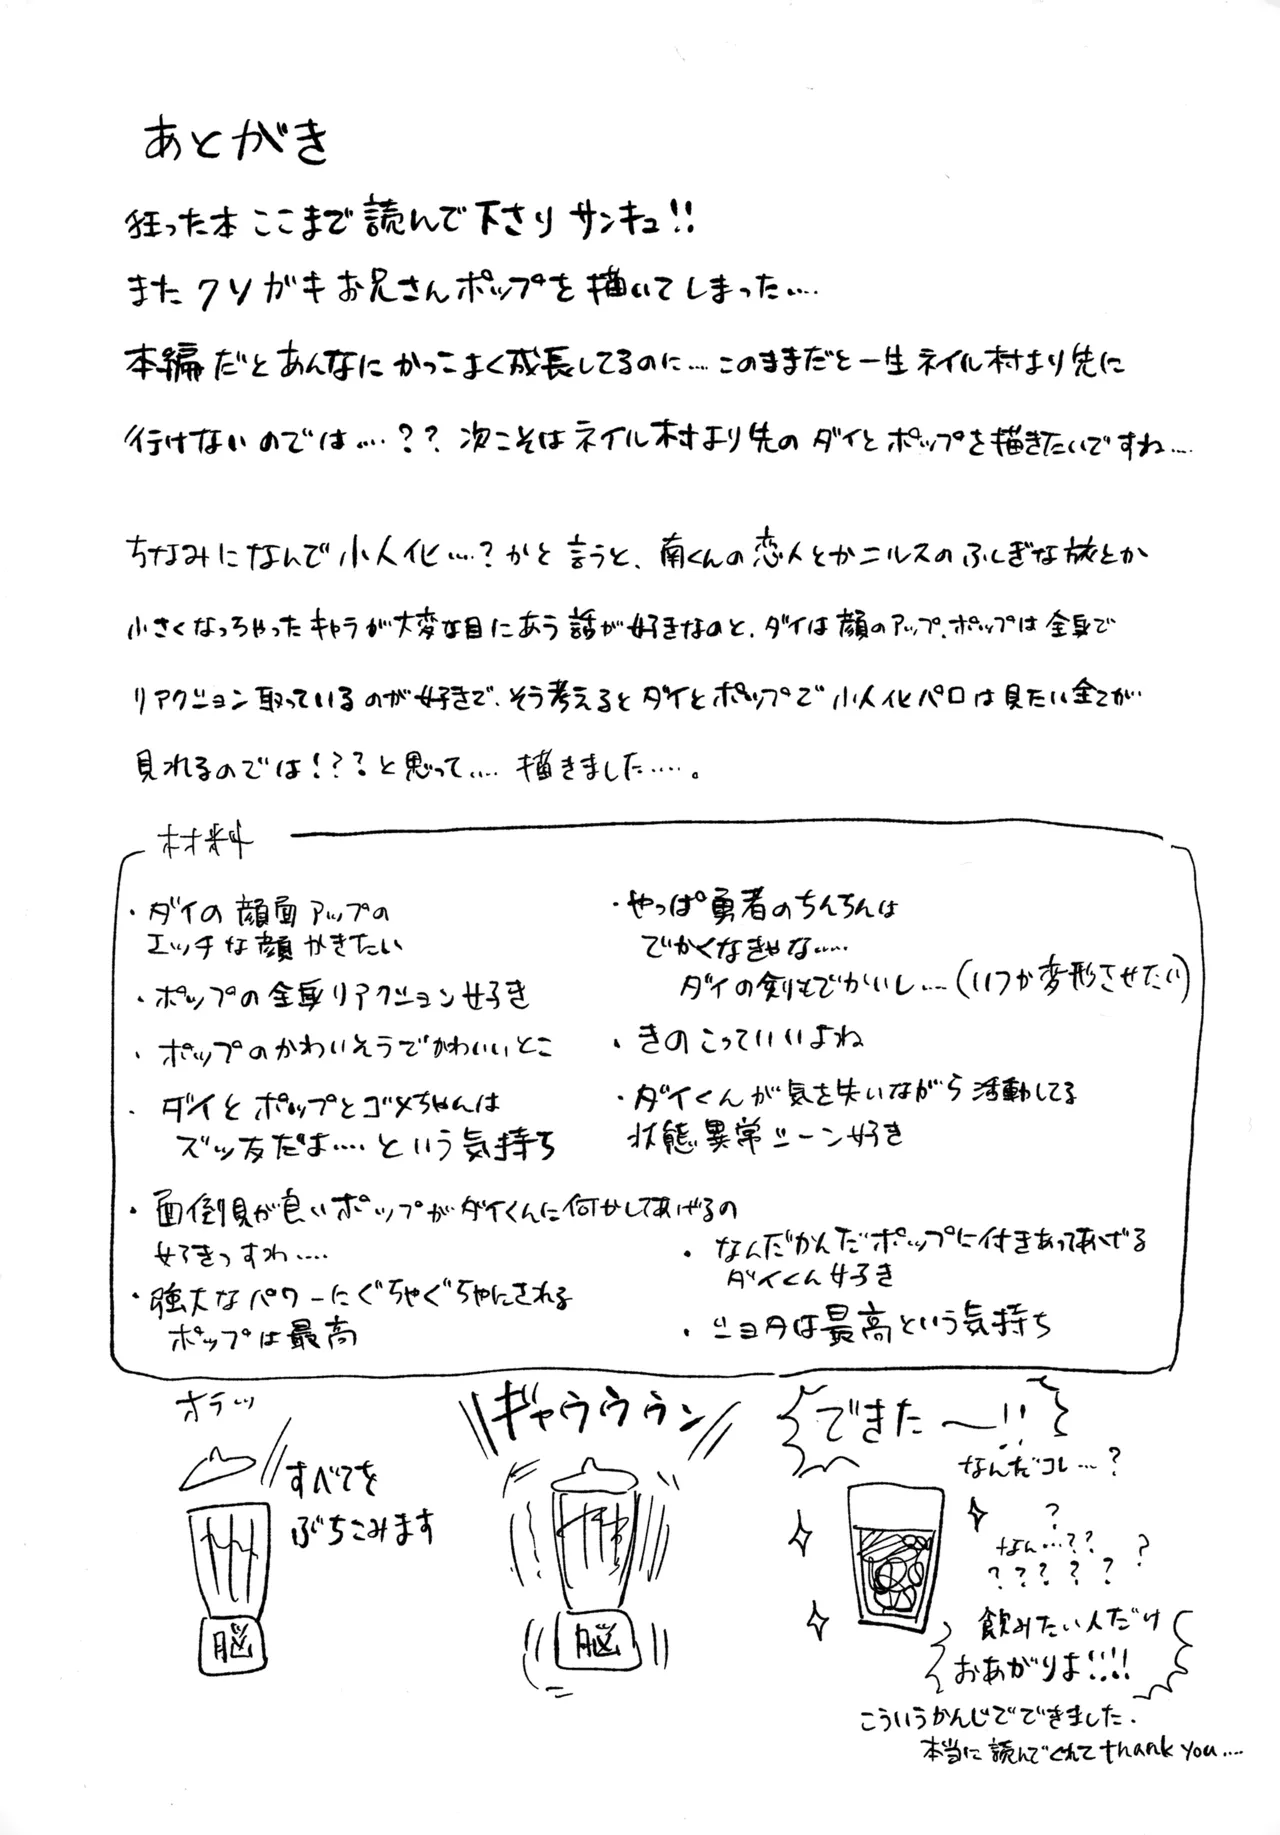 あとがき
狂った本ここまで読んで下さりサンキュ!!
またクソガキお兄さんポップを描いてしまった….
本編だとあんなにかっこよく成長してるのに….このままだと一生ネイル村より先に
行けないのでは….??次こそはネイル村より先のダイとポップを描きたいですね….
ちなみになんで小人化….?かと言うと、南くんの恋人とかニルスのふしぎな旅とか
小さくなっちゃったキャラが大変な目にあう話が好きなのと、ダイは顔のアップ、ポップは全身で
リアクション取っているのが好きで、そう考えるとダイとポップで小人化パロは見たい全てが
見れるのでは!??と思って….. 描きました…..。
材料
・ダイの顔面アップの
エッチな顔かきたい
・ポップの全身リアクション好き
・ポップのかわいそうでかわいいとこ
・ダイとポップとゴメちゃんは
ズッ友だよ….という気持ち
・面倒見が良いポップがダイくんに何かしてあげるの
好きっすわ….
・強大なパワーにぐちゃぐちゃにされる
ポップは最高
・やっぱ勇者のちんちんは
でかくなきゃな…..
ダイの剣もでかいし….(いつか変形させたい)
・きのこっていいよね
・ダイくんが気を失いながら活動してる
状態異常シーン好き
・なんだかんだポップに付きあってあげる
ダイくん好き
・ショタは最高という気持ち
オラッ
すべてを
ぶちこみます
脳
ギャウウウン
脳
できた〜!!
なんだコレ…?
?
なん…??
?
?????
飲みたい人だけ
おあがりよ!!!!
こういうかんじでできました.
本当に読んでくれてthank you….